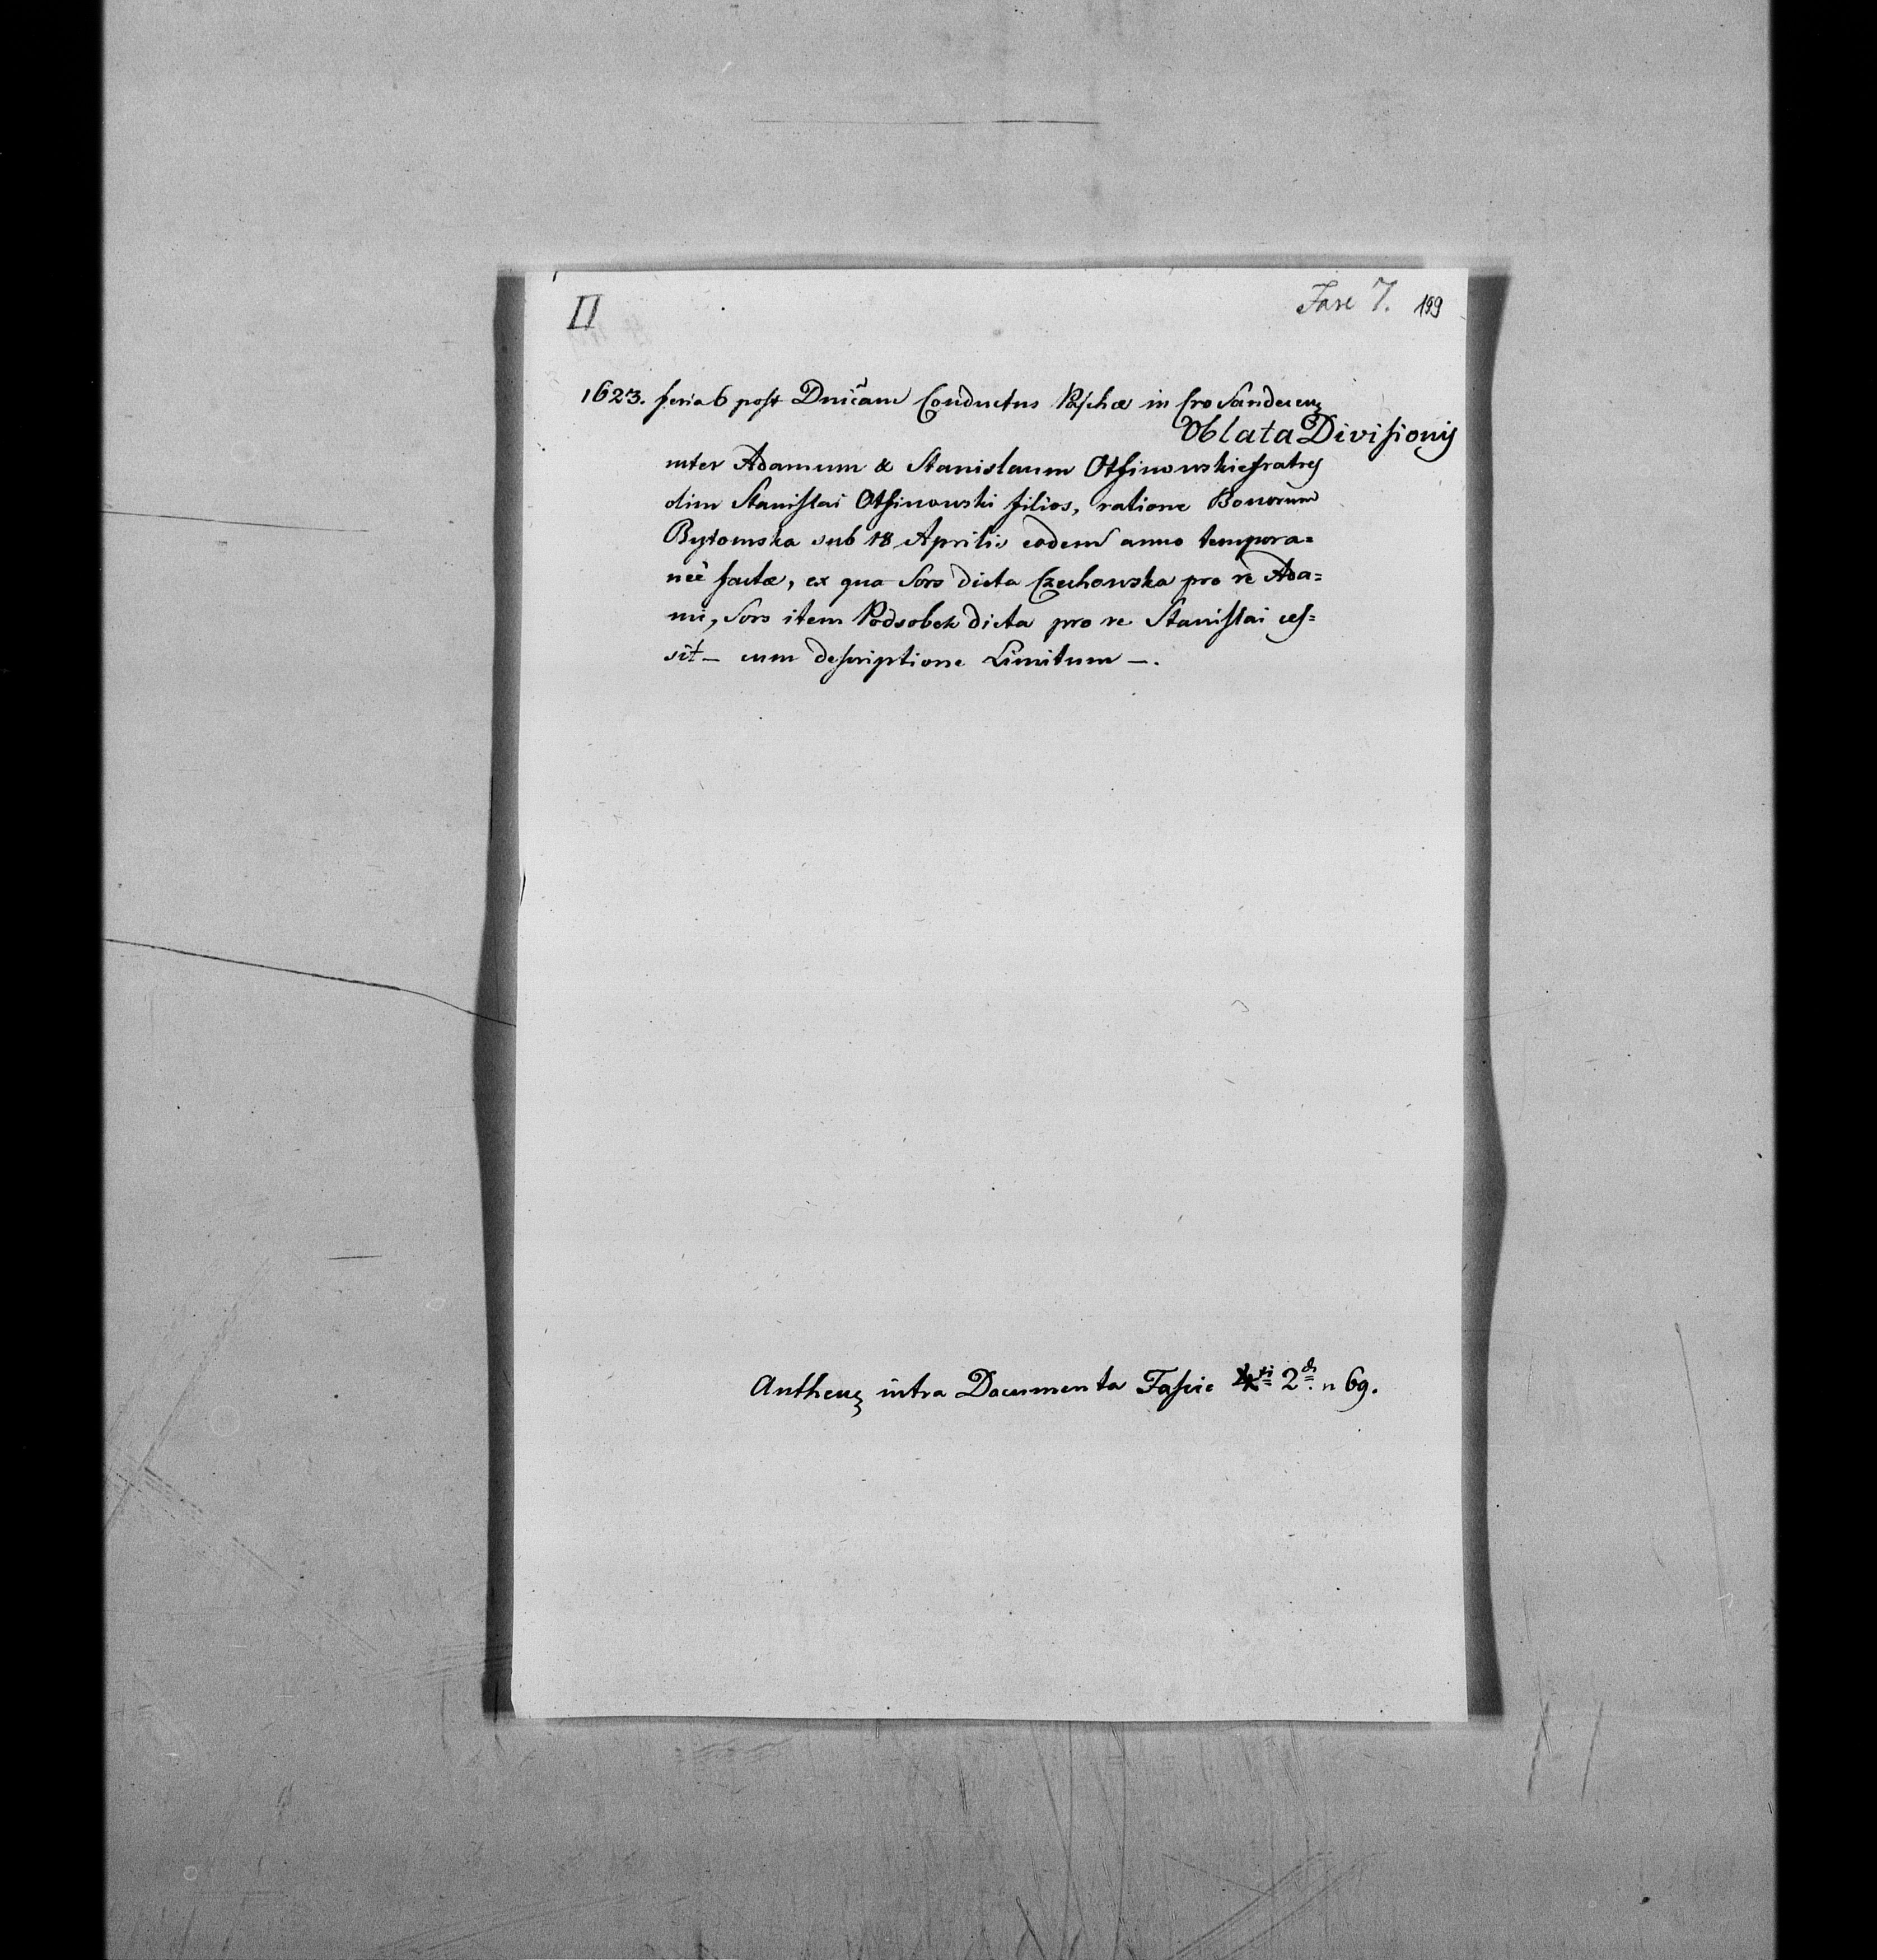 II Fasc 7. 199
1623. feria 6 post Dnicam Conductus Paschæ in Cro Sandecen
Oblata Divisionis
inter Adamum & Stanislaum Otfinowskie fratres
olim Stanislai Otfinowski filios, ratione Bonorum
Bytomska sub 18 Aprilis eodem anno tempora=
neè factæ, ex qua Sors dicta Czechowska pro rè Ada=
mi, Sors item Podsobek dicta pro re Stanislai ces=
sit — cum descriptione Limitum —.
Authen intra Documenta Fascic 2di n 69.